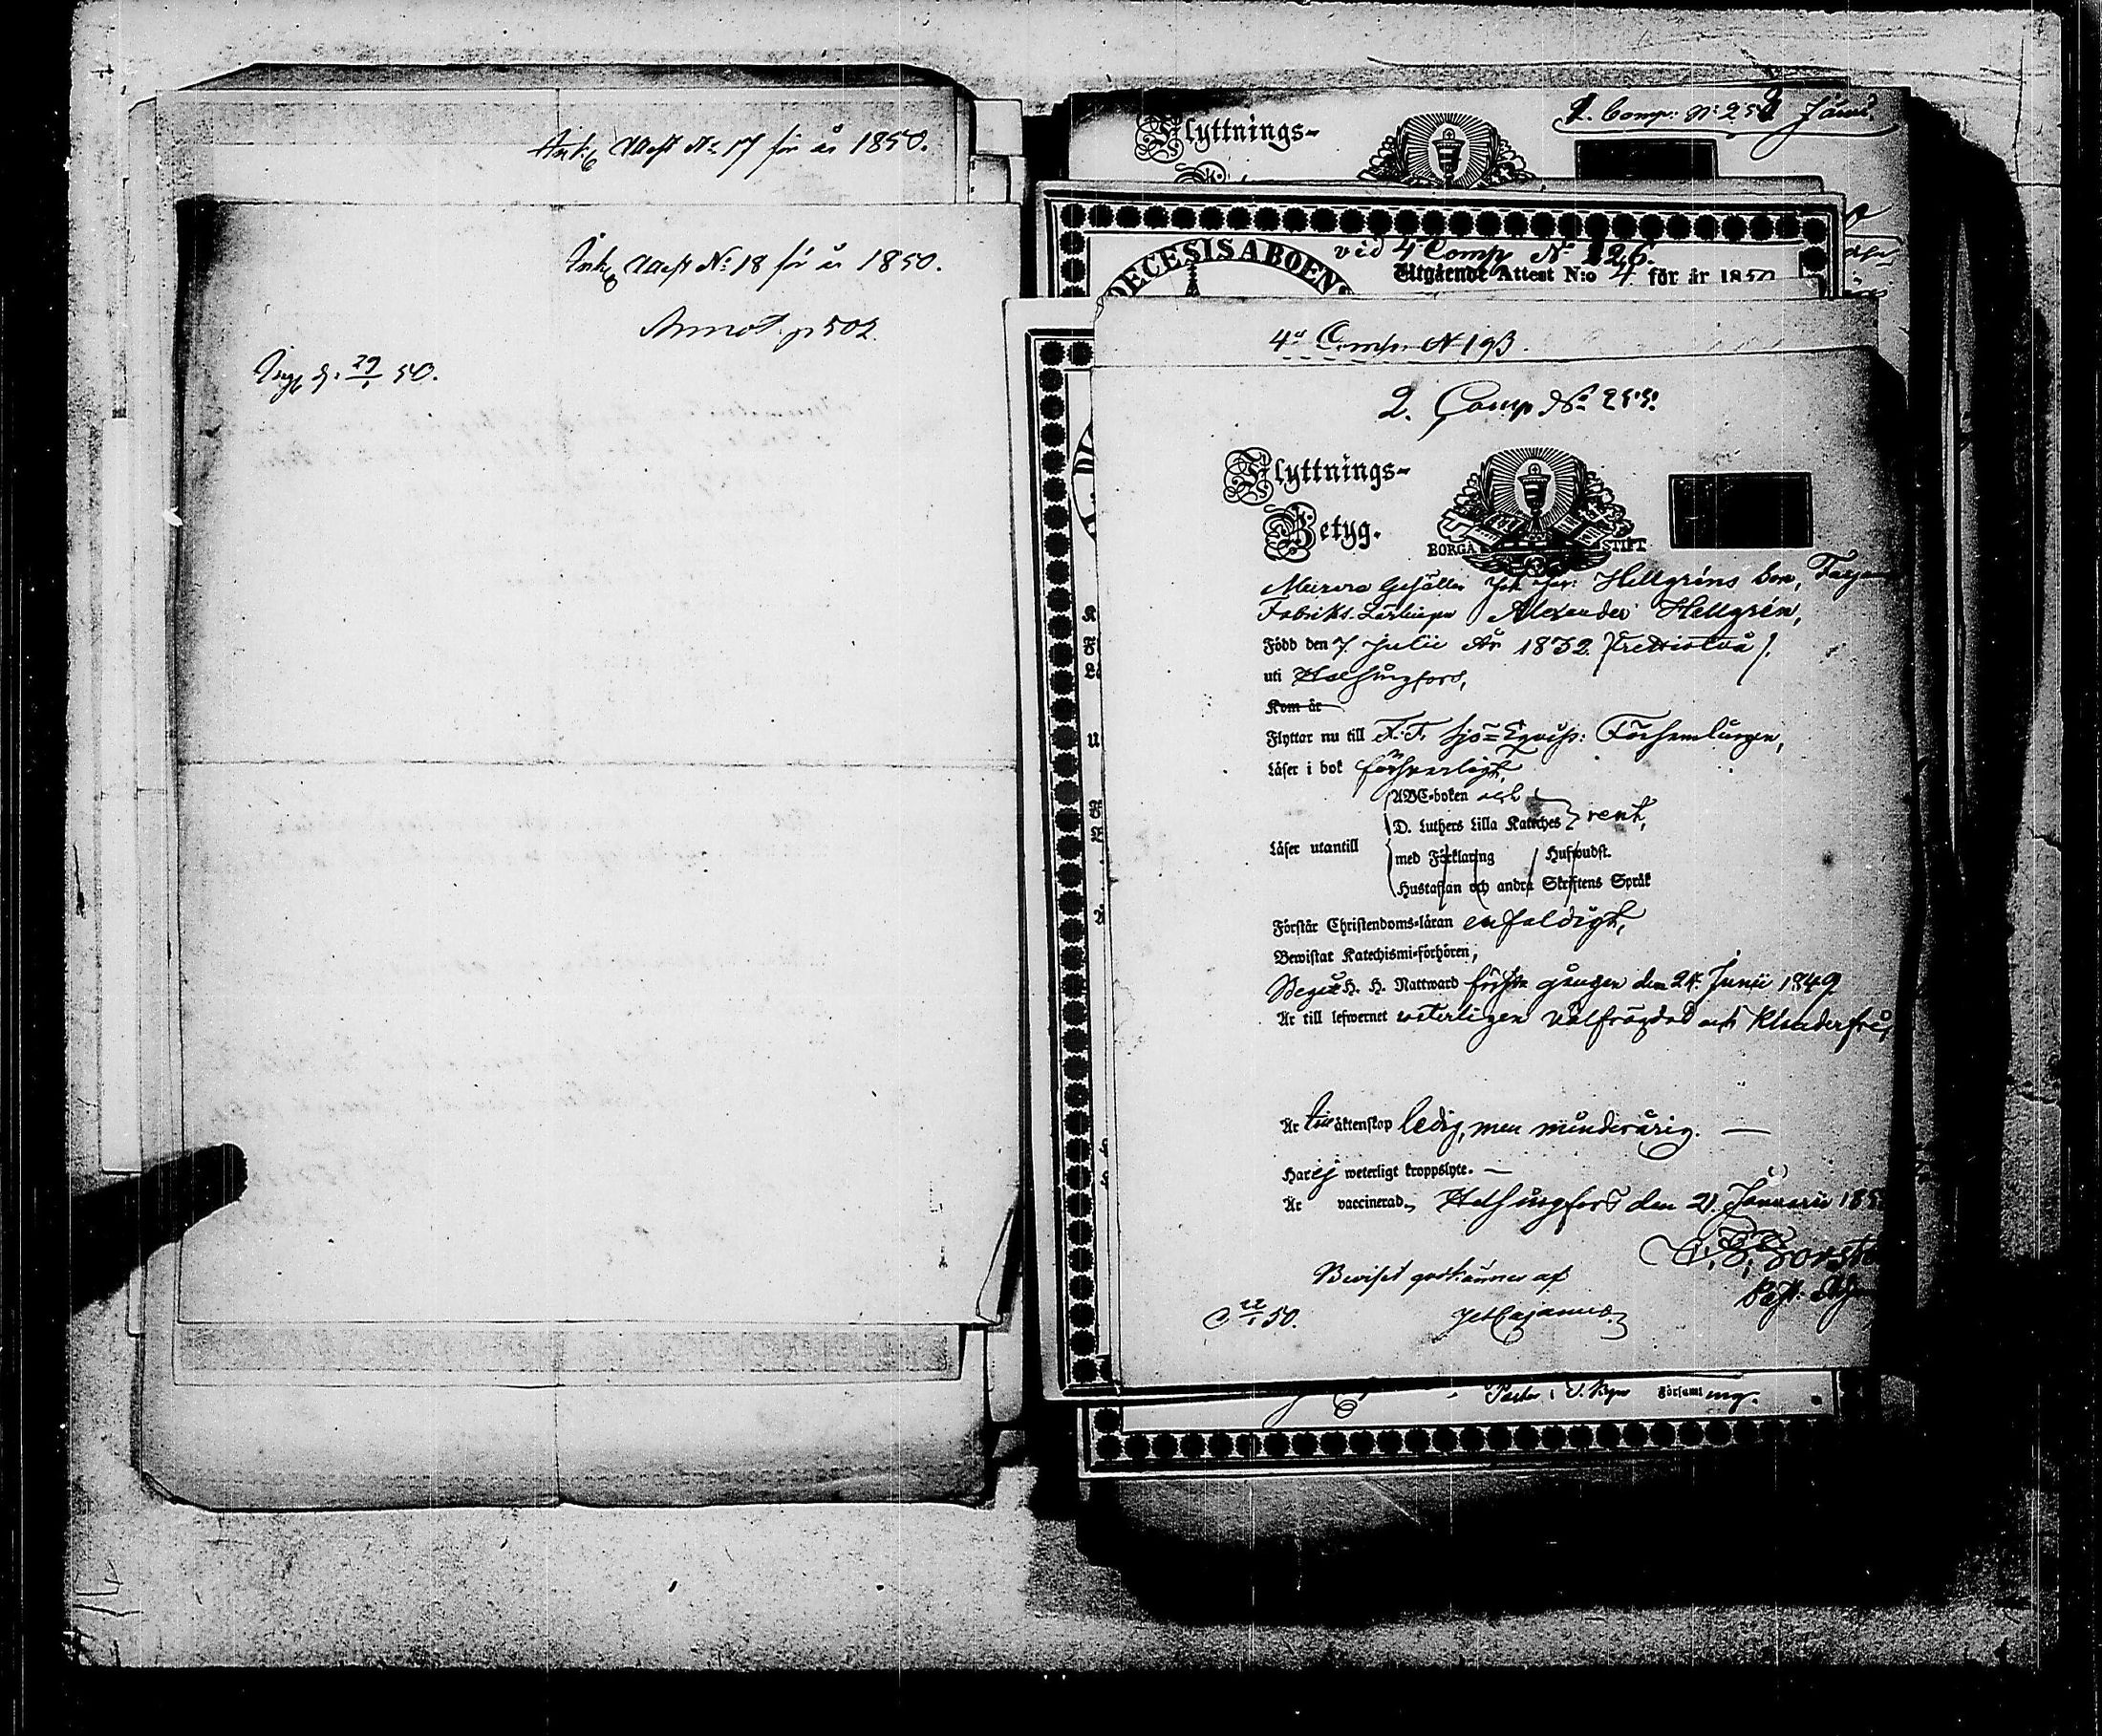 Ank. Attest No 17 för år 1850.
Ank. Attest No 18 för år 1850.
Annot. p 502.
Ing. d. 29/1 50.
Flyttnings-
2. Comp. No 25
DECESIS ABOENS
vid 4 Comp No 126.
Utgående Attest N:o 4 för år 1850
4de Comp. N 193.
2. Comp No 255.
Flyttnings-
Betyg.
BORGÅ STIFT
Murare Gesällen Hellgréns son,
Fabriks-Lärlingen Alexander Hellgrén,
Född den 7 Julii År 1832 /Trettiotvå/.
uti Helsingfors,
Kom år
Flyttar nu till F. F. Sjö-Equip: Församlingen,
Läser i bok försvarligt,
ABC-boken och
D. Luthers Lilla Kateches rent,
Läser utantill
med Förklaring Hufvudst.
Hustaflan och andra Skriftens Språk
Förstår Christendoms-läran enfaldigt,
Bewistat Katechismi-förhören,
Begått H. H. Nattward första gången den 24 Junii 1849
Är till lefwernet veterligen välfrägdad och klanderfri,
Är till äktenskap ledig, men minderårig. —
Har ej weterligt kroppslyte. —
Är vaccinerad, Helsingfors den 21. Januarii 185
Beviset godkännes af
C 22/1 50. Cajanus.
Pastor i Församl ing.